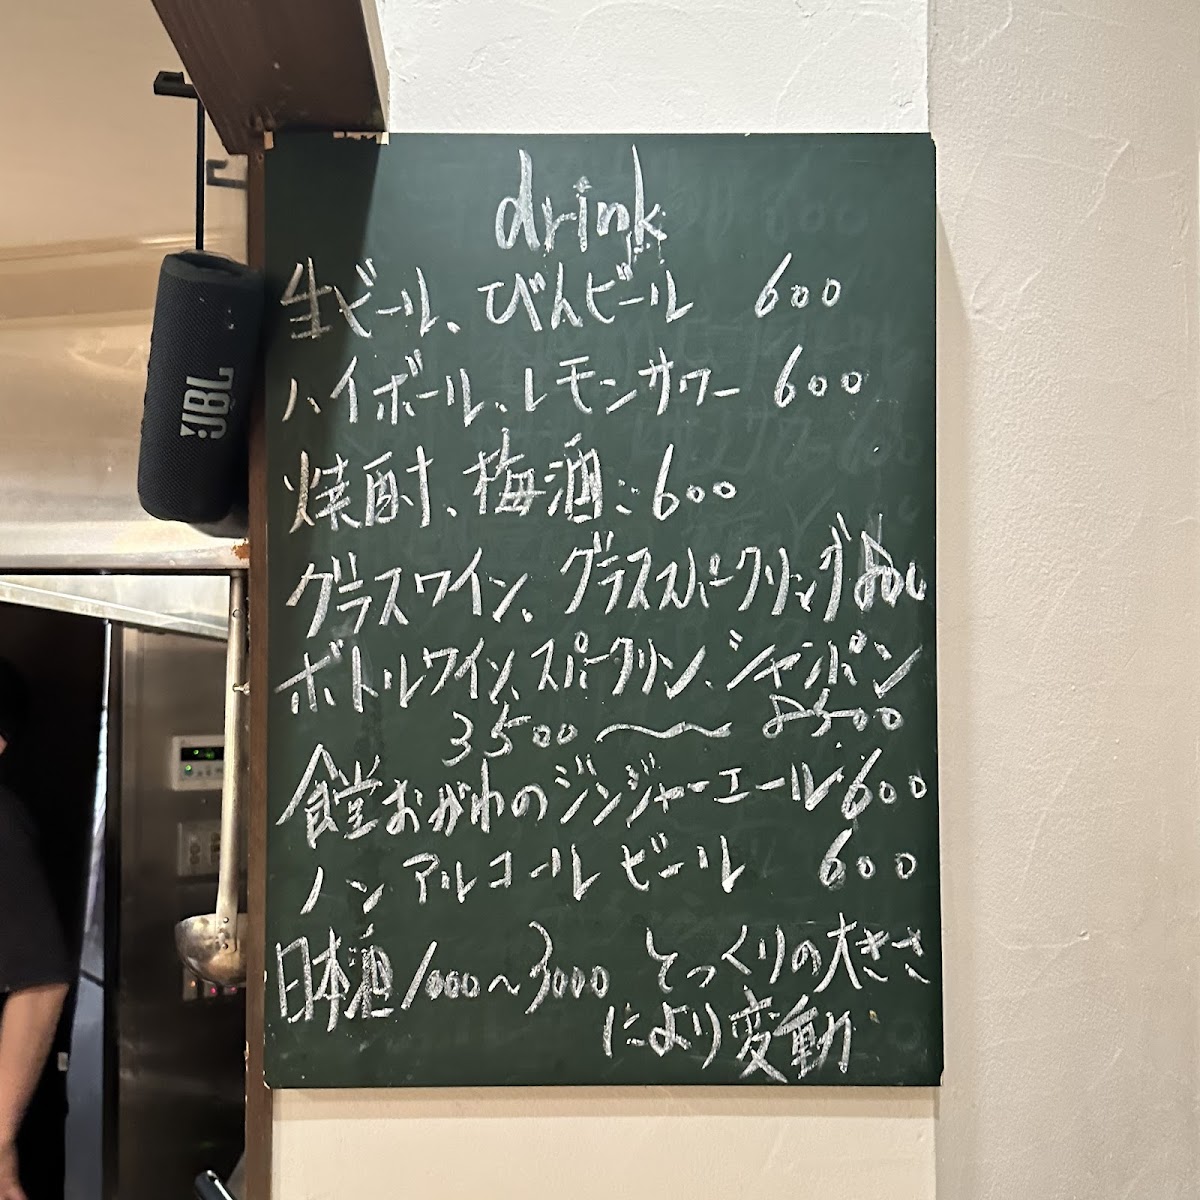 drink
生ビール、びんビール 600
ハイボール、レモンサワー 600
焼酎、梅酒 : 600
グラスワイン、グラススパークリング
ボトルワイン、スパークリン、シャンパン
3500 〜 8500
食堂おがわのジンジャーエール 600
ノンアルコールビール 600
日本酒 1000〜3000 とっくりの大きさ
により変動
JBL